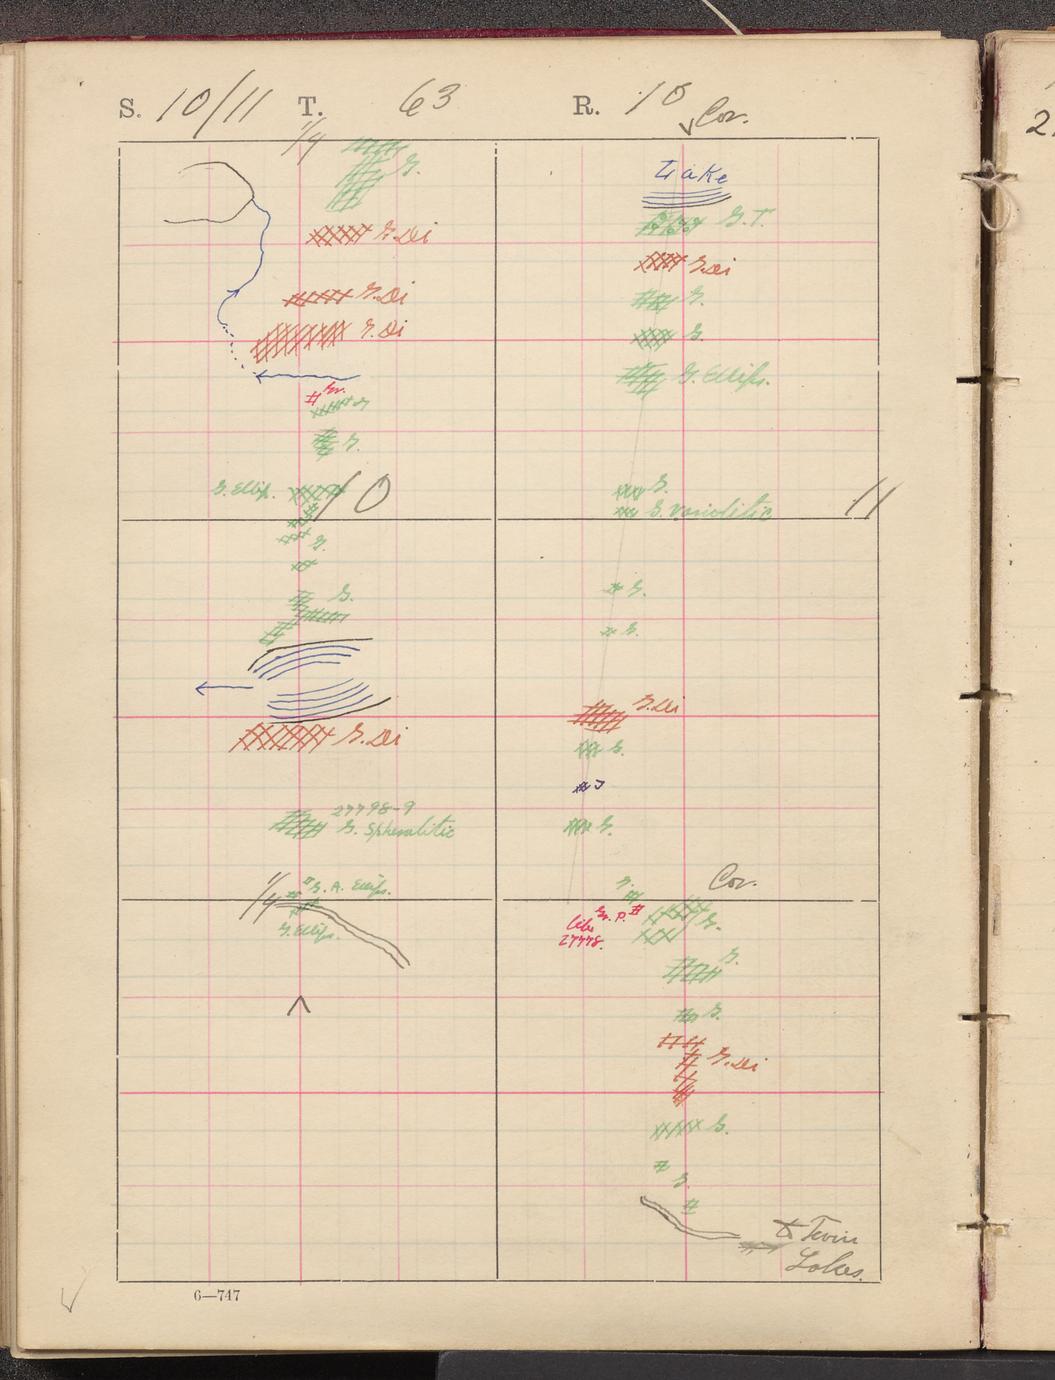 S. 10/11 T. 63 R. 10
Cor.
1/4
G.
G.Di
G.Di
G.Di
Gr.
G
G.
G. Ellips.
10
G.
G.
G.Di
27798-9
G. Spherulitic
1/4
G. A. Ellips.
G. Ellips.
Lake
G.T.
G.Di
G.
G.
G. Ellips.
G.
G. Variolitic
11
G.
G.
G.Di
G.
J
G.
Cor.
G.
Gr. P.
27778.
G.
G.
G.
G.Di
G.
G.
to Twin
Lakes.
6—747
2